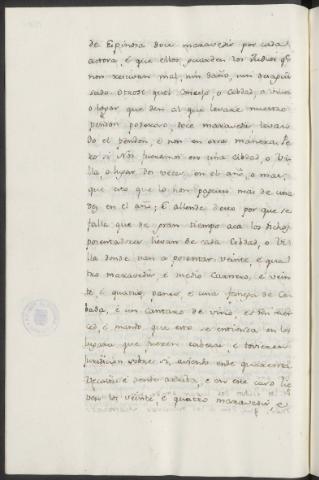 de Espinosa doce maravedis por cada
carrera, é que ellos guarden los Judios q.e
non reciuan mal, nin daño, nin desagui
sado. Otrosi quel Concejo, o Cibdad, a Villa
o logar que den al que levare nuestro
pendon posadero, doce maravedis, levan
do el pendon, é non en otra manera: Pe
ro si Nos fueremos en una cibdad, o Vi
lla, o logar dos veces en el año, o mas,
que esto que lo non paguen mas de una
vez en el año; E allende desto por que se
falla que de gran tiempo acá los dichos
posentadores lievan de cada Cibdad, o Vi
lla donde van a posentar veinte, é qua
tro maravedis é medio Carnero, é vein
te, é quatro panes, é una fanega de Ce
bada, é un Cantaro de vino, es mi mer
ced, é mando, que esto se entienda en los
logares que fueren cabeza, é tovieren
juridicion sobre si,
vecinos é dende arriba, é en este caso lie
ven los veinte, é quatro maravedis é